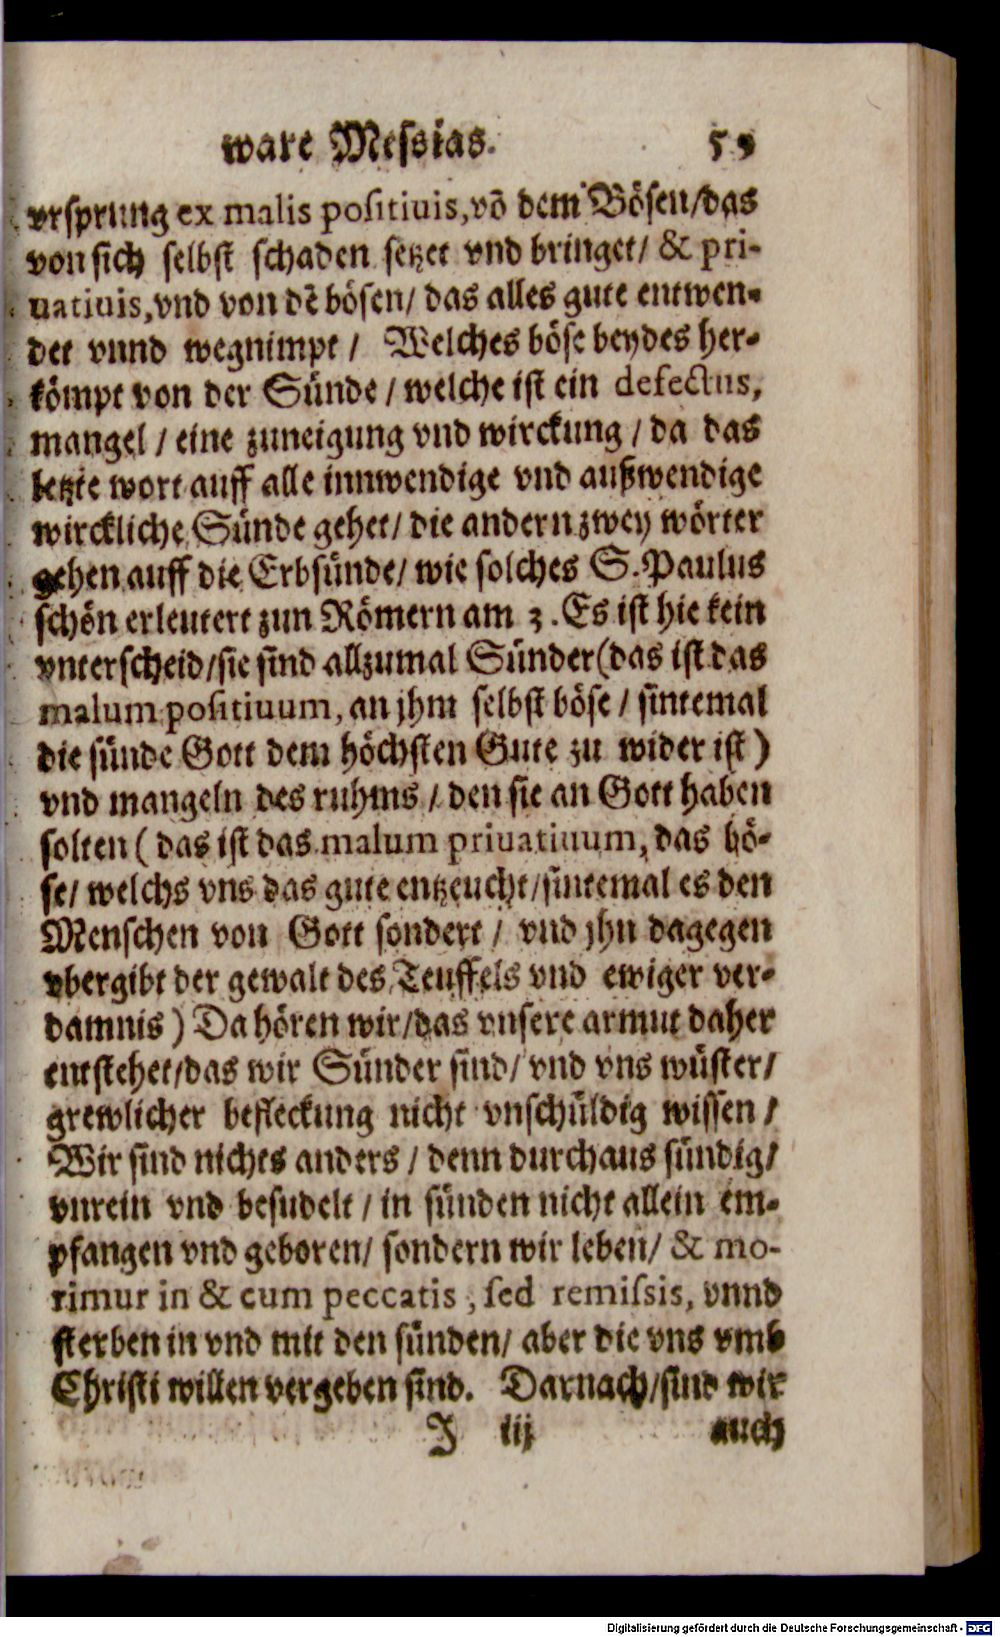 ware Messias. 59
vrsprung ex malis positiuis, võ dem Bösen/das
von sich selbst schaden setzet vnd bringet/ & pri-
uatiuis, vnd von dẽ bösen/ das alles gute entwen-
det vnnd wegnimpt / Welches böse beydes her-
kömpt von der Sünde / welche ist ein defectus,
mangel / eine zuneigung vnd wirckung / da das
letzte wort auff alle innwendige vnd außwendige
wirckliche Sünde gehet/ die andern zwey wörter
gehen auff die Erbsünde/ wie solches S. Paulus
schön erleutert zun Römern am 3. Es ist hie kein
vnterscheid/sie sind allzumal Sünder(das ist das
malum positiuum, an jhm selbst böse / sintemal
die sünde Gott dem höchsten Gute zu wider ist)
vnd mangeln des ruhms / den sie an Gott haben
solten ( das ist das malum priuatiuum, das bö-
se/ welchs vns das gute entzeucht/sintemal es den
Menschen von Gott sondert / vnd jhn dagegen
vbergibt der gewalt des Teuffels vnd ewiger ver-
damnis ) Da hören wir/das vnsere armut daher
entstehet/das wir Sünder sind/ vnd vns wüster/
grewlicher befleckung nicht vnschüldig wissen /
Wir sind nichts anders / denn durchaus sündig/
vnrein vnd besudelt / in sünden nicht allein em-
pfangen vnd geboren/ sondern wir leben/ & mo-
rimur in & cum peccatis, sed remissis, vnnd
sterben in vnd mit den sünden/ aber die vns vmb
Christi willen vergeben sind. Darnach/sind wir
J iij auch
Digitalisierung gefördert durch die Deutsche Forschungsgemeinschaft - DFG